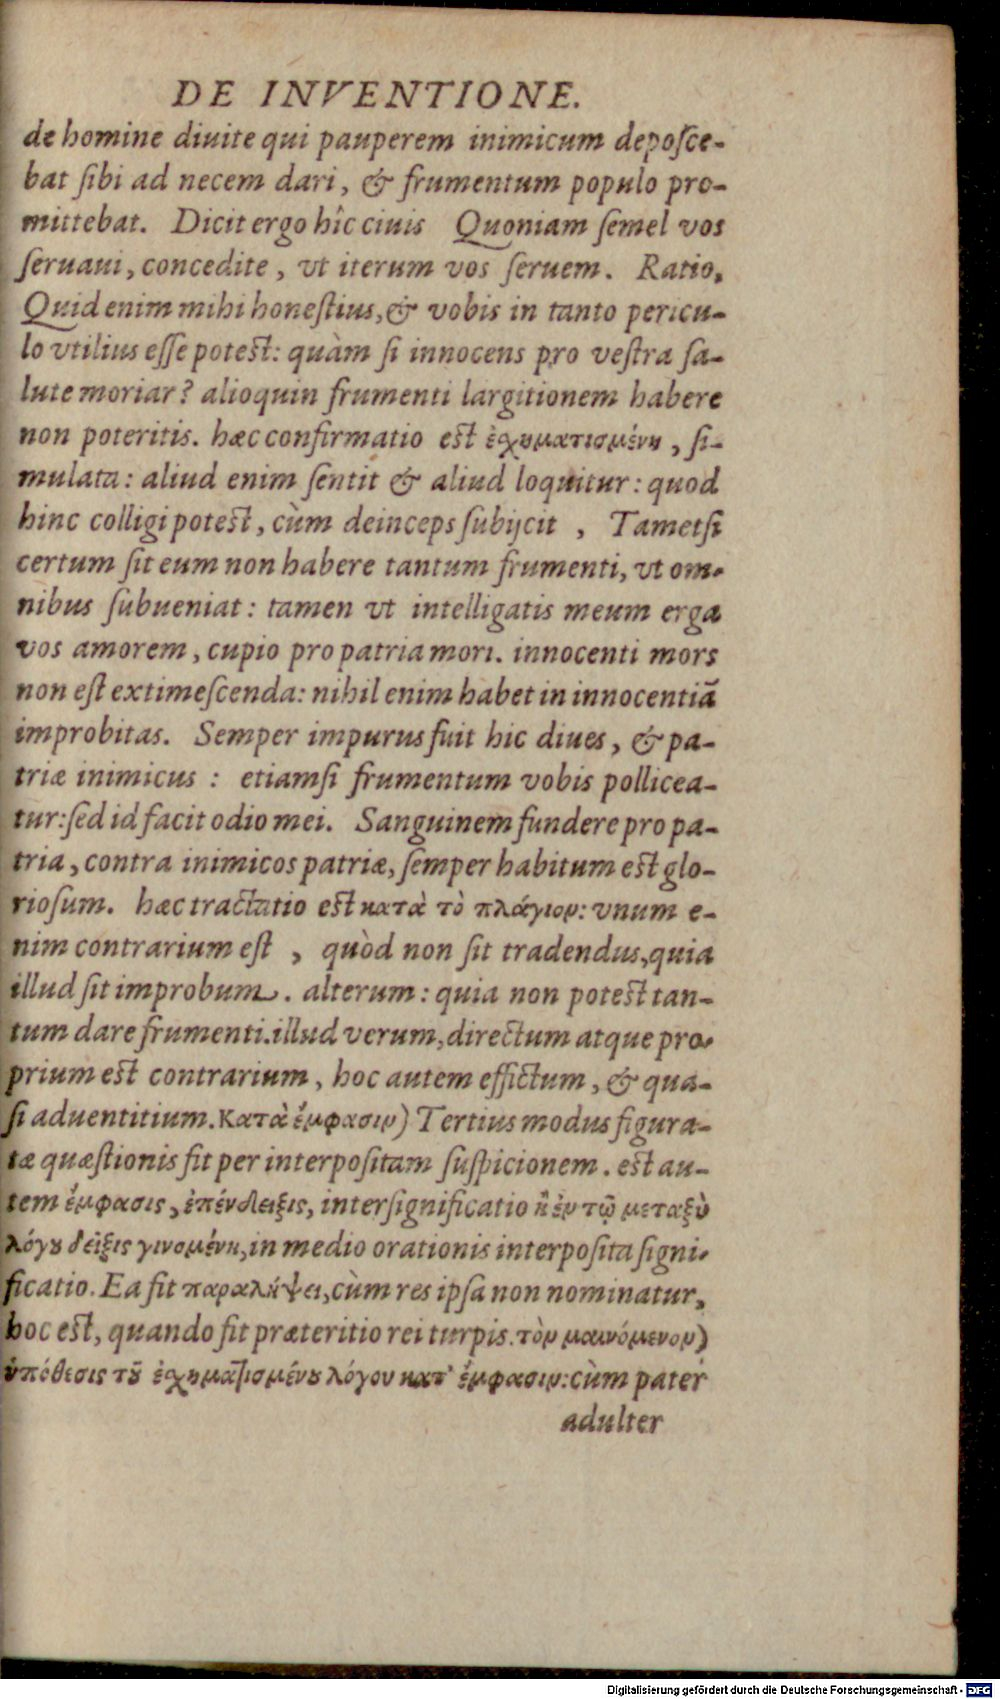 DE INVENTIONE.
de homine diuite qui pauperem inimicum deposce-
bat sibi ad necem dari, & frumentum populo pro-
mittebat. Dicit ergo hîc ciuis Quoniam semel vos
seruaui, concedite, vt iterum vos seruem. Ratio,
Quid enim mihi honestius, & vobis in tanto pericu-
lo vtilius esse potest: quàm si innocens pro vestra sa-
lute moriar? alioquin frumenti largitionem habere
non poteritis. hæc confirmatio est ἐχηματισμένη, si-
mulata: aliud enim sentit & aliud loquitur: quod
hinc colligi potest, cùm deinceps subijcit , Tametsi
certum sit eum non habere tantum frumenti, vt om-
nibus subueniat: tamen vt intelligatis meum erga
vos amorem, cupio pro patria mori. innocenti mors
non est extimescenda: nihil enim habet in innocentiā
improbitas. Semper impurus fuit hic diues, & pa-
triæ inimicus : etiamsi frumentum vobis pollicea-
tur: sed id facit odio mei. Sanguinem fundere pro pa-
tria, contra inimicos patriæ, semper habitum est glo-
riosum. hæc tractatio est κατὰ τὸ πλάγιον: vnum e-
nim contrarium est , quòd non sit tradendus, quia
illud sit improbum. alterum: quia non potest tan-
tum dare frumenti. illud verum, directum atque pro-
prium est contrarium, hoc autem effictum, & qua-
si aduentitium. Κατὰ ἔμφασιν) Tertius modus figura-
tæ quæstionis fit per interpositam suspicionem. est au-
tem ἔμφασις, ἐπένδειξις, intersignificatio ἢ ἐν τῷ μεταξὺ
λόγȣ δεῖξις γινομένη, in medio orationis interposita signi-
ficatio. Ea fit παραλήψει, cùm res ipsa non nominatur,
hoc est, quando fit præteritio rei turpis. τὸν μαινόμενον)
ὑπόθεσις τȣ͂ ἐχηματισμένȣ λόγου κατ' ἔμφασιν: cùm pater
adulter
Digitalisierung gefördert durch die Deutsche Forschungsgemeinschaft - DFG